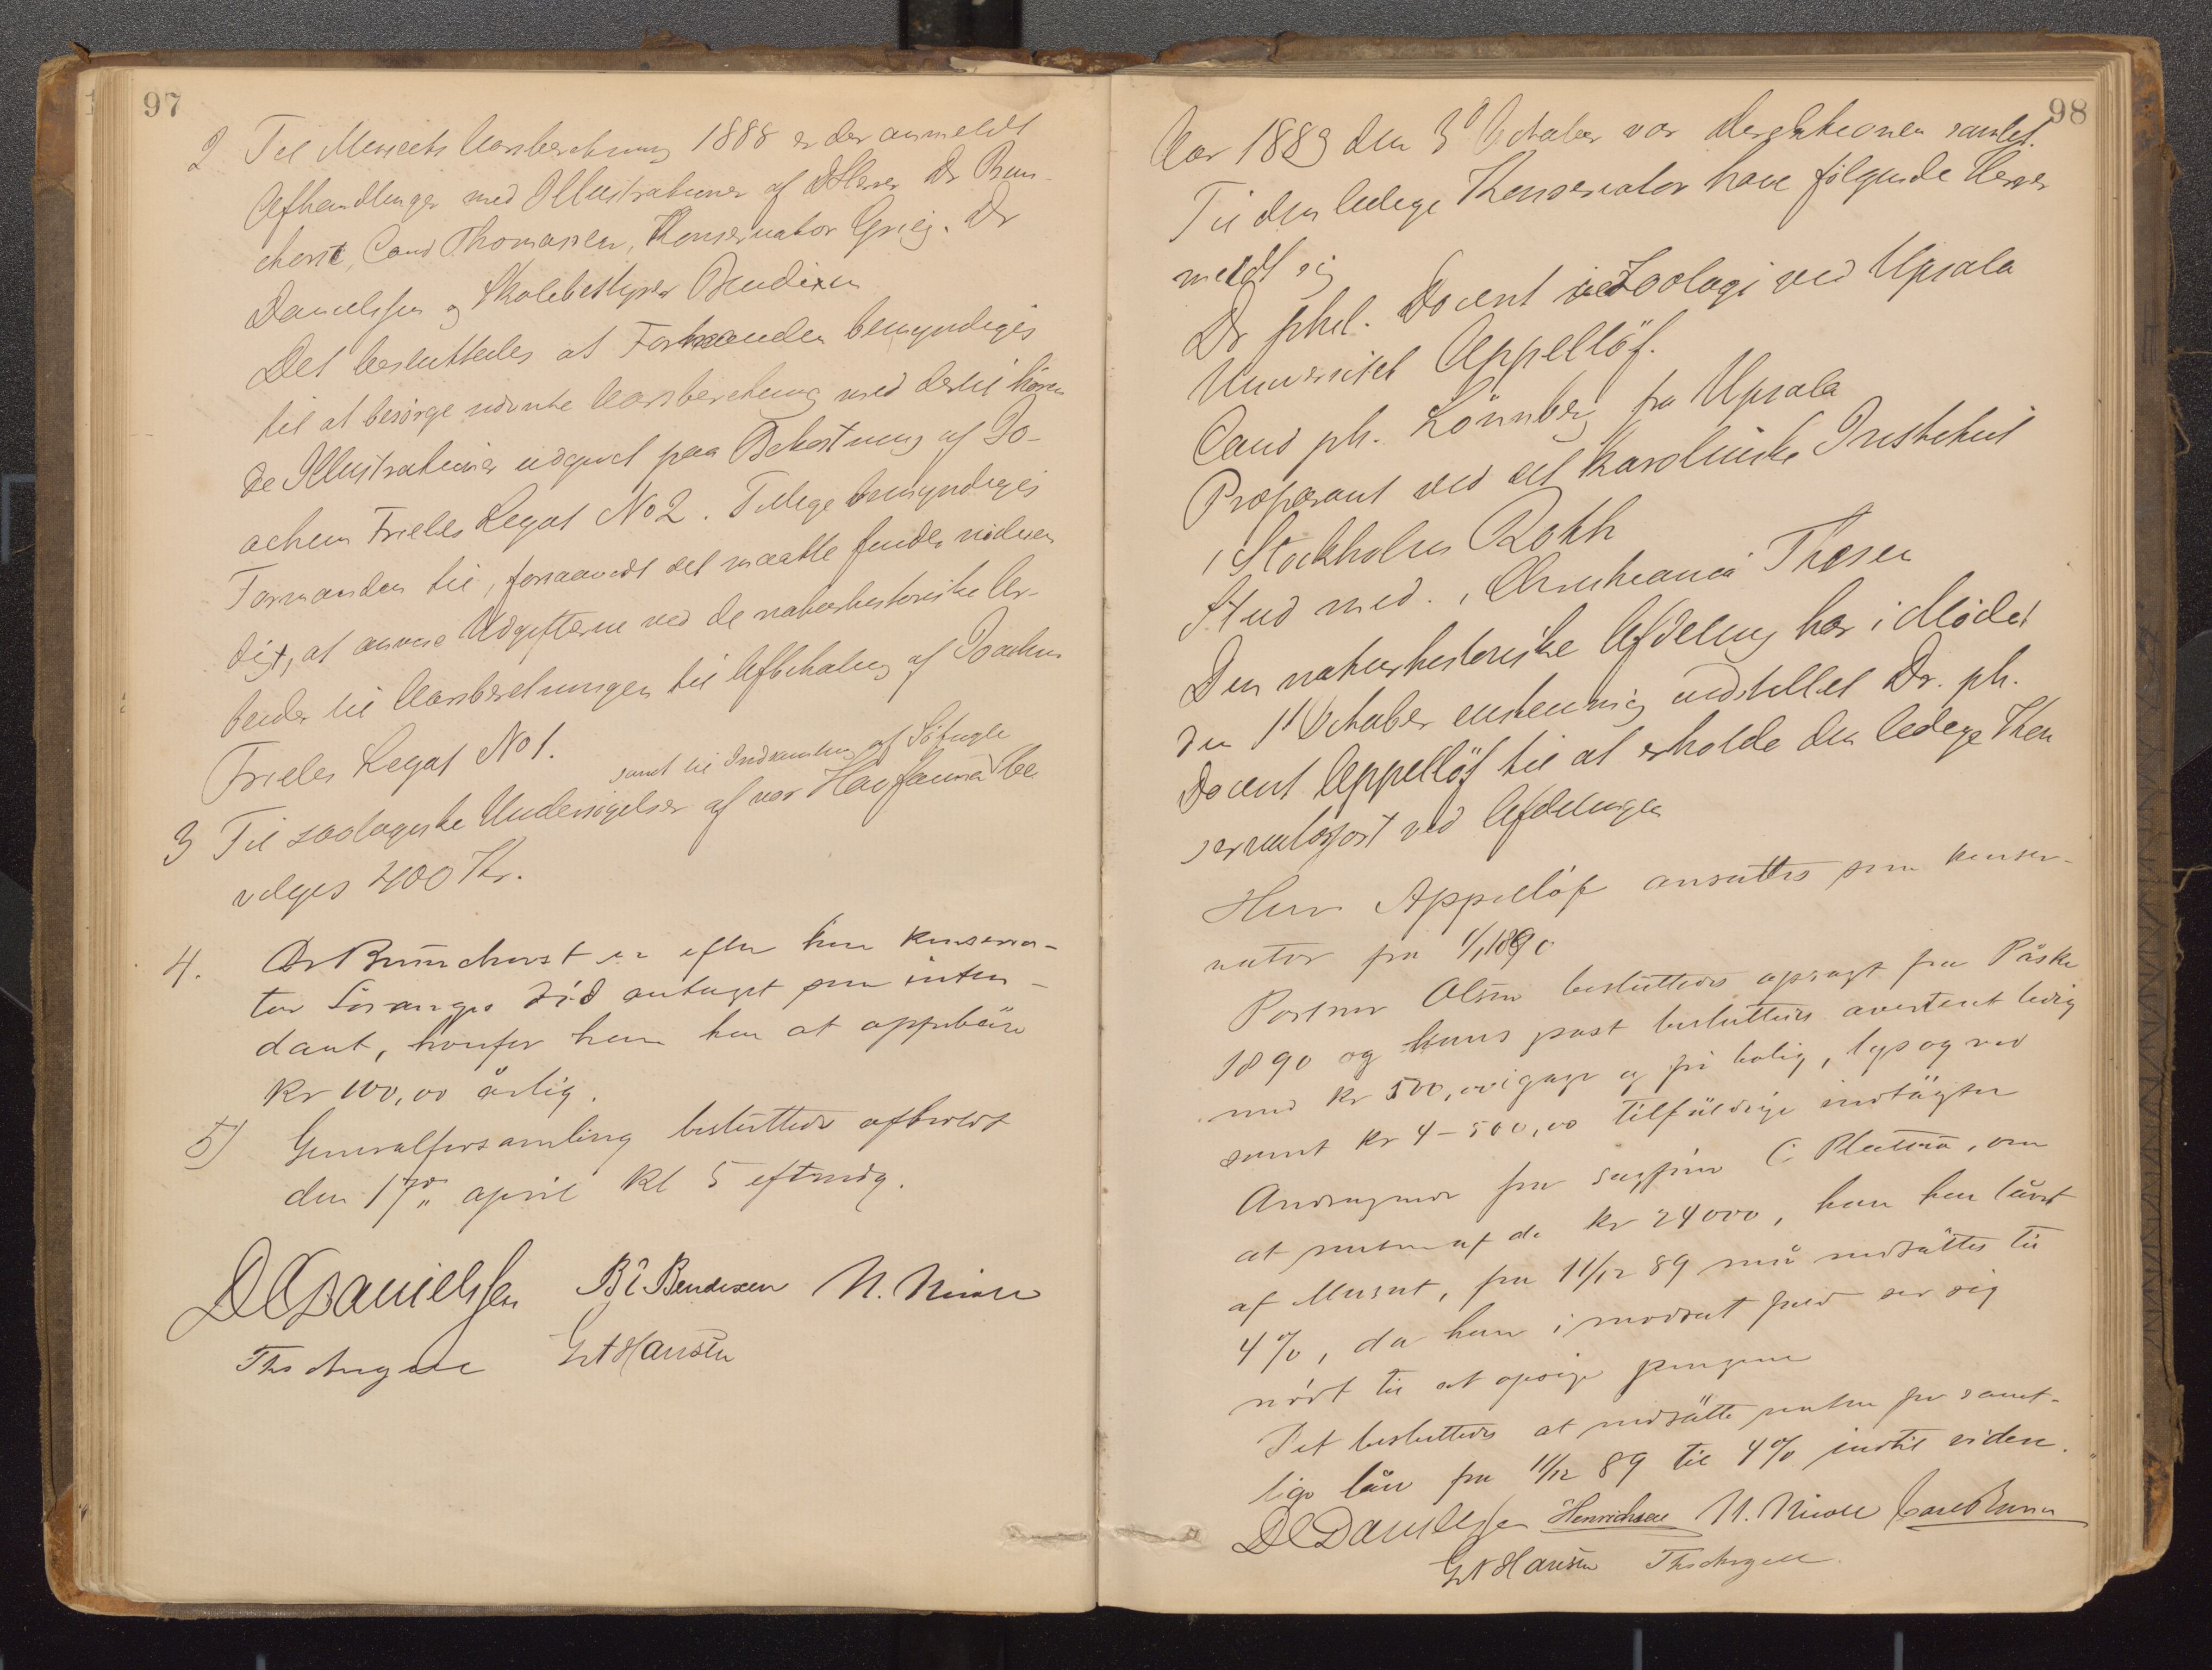 97
2 Til Museets Aarsberetning 1888 er der anmeldt
Afhandlinger med Illustrationer af DHerrer Dr Brun-
chorst, Cand Thomassen, Konservator Grieg. Dr
Danielssen og Skolebestyrer Bendixen
Det besluttedes at Formanden bemyndiges
til at besørge nævnte Aarsberetning med dertil hören
de Illustrationer udgivet paa Bekostning af Jo-
achim Frieles Legat No 2. Tillige bemyndiges
Formanden til, forsaavidt det maatte findes nödven
digt, at anvise Udgifterne ved de naturhistoriske Ar-
beider til Aarsberetningen til Afbetaling af Joachim
Frieles Legat No 1.
samt til Indsamling af Söfugle
3 Til zoologiske Undersögelser af vor Havfauna be
vilges 400 Kr.
4. Dr Brunchorst er efter herr konserva-
tor Loranges död antaget som inten-
dant, hvorfor han har at oppebäre
Kr 100,00 årlig.
5) Generalforsamling besluttedes afholdt
den 17de april kl 5 eftmdg.
DCDanielssen B E Bendixen N. Nicoll
Ths Angell G A Hansen
98
Aar 1889 den 3d October var Direktionen samlet.
Til den ledige Konservator have fölgende Herrer
meldt sig
Dr phil. Docent i Zoologi ved Upsala
Universitet Appellöf.
Cand ph. Lönnberg fra Upsala
Preparant ved det Karolinske Institut
i Stockholm Roth
Stud med. i Christiania Thesen
Den naturhistoriske Afdeling har i Mödet
den 1st October enstemmig indstillet Dr. ph.
Docent Appellöf til at erholde den ledige Kon
servatorpost ved Afdelingen
Herr Appellöf ansattes som konser-
vator fra 1/1 1890
Portner Olsen besluttedes opsagt fra Påske
1890 og hans post besluttedes averteret ledig
med kr 500,00 i gage og fri bolig, lys og ved
samt kr 4-500,00 tilfäldige indtägter
Andragende fra sagförer C. Platou, om
at renten af de kr 24000, han har lånt
af Museet, fra 11/12 89 må nedsättes til
4%, da han i modsat fald ser sig
nödt til at opsige pengene
Det besluttedes at nedsätte renten for samt-
lige lån fra 11/12 89 til 4% indtil videre.
DCDanielssen Henrichsen N. Nicoll
G A Hansen Ths Angell